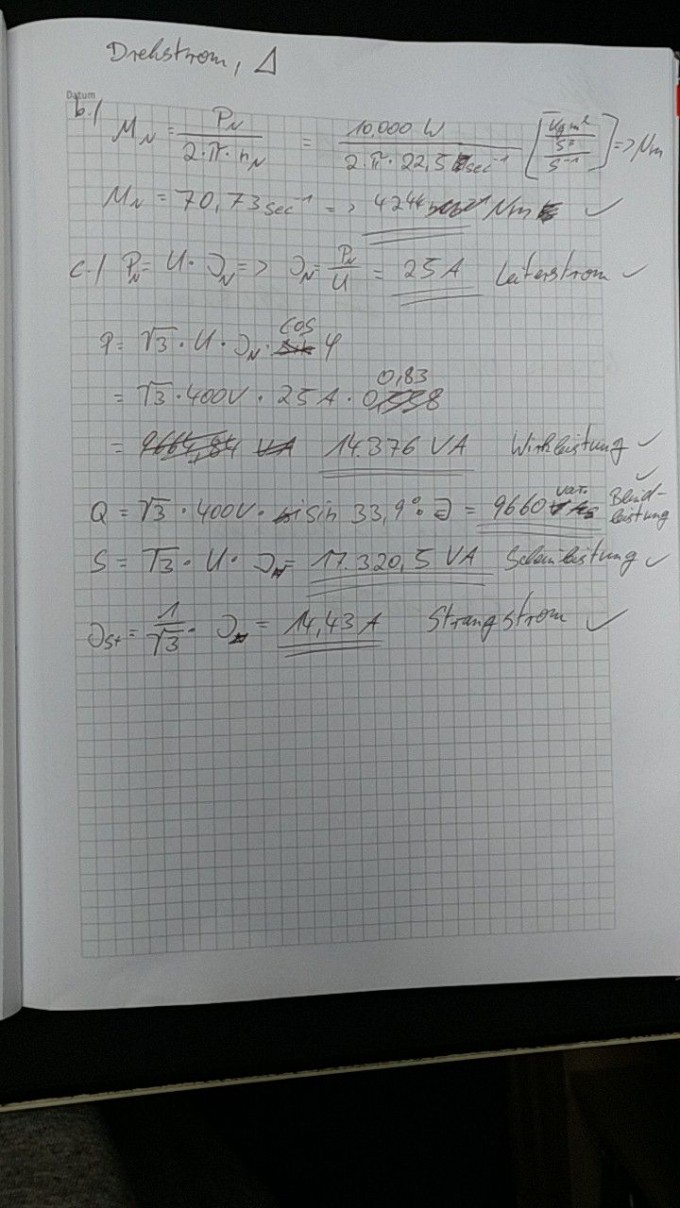 Drehstrom, Δ
Datum
b.) M_N = P_N / (2·π·n_N) = 10.000 W / (2·π·22,5 sec⁻¹) [ (kg m² / s³) / s⁻¹ ] => Nm
M_N = 70,73 sec⁻¹ => 4244 Nm ✓
c.) P_N = U·I_N => I_N = P_N / U = 25 A Leiterstrom ✓
P = √3 · U · I_N · cos φ
= √3 · 400V · 25 A · 0,83
= 14.376 VA Wirkleistung ✓
Q = √3 · 400V · sin 33,9° · I = 9660 var Blindleistung ✓
S = √3 · U · I = 17.320,5 VA Scheinleistung ✓
I_St = 1/√3 · I = 14,43 A Strangstrom ✓